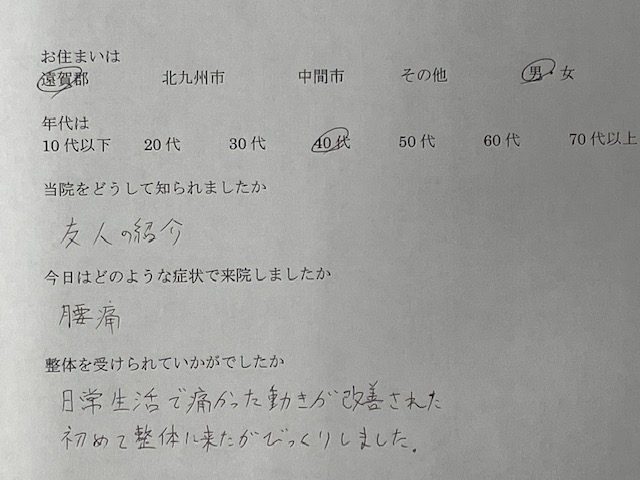 お住まいは
遠賀郡 北九州市 中間市 その他 男・女
年代は
10代以下 20代 30代 40代 50代 60代 70代以上
当院をどうして知られましたか
友人の紹介
今日はどのような症状で来院しましたか
腰痛
整体を受けられていかがでしたか
日常生活で痛かった動きが改善された
初めて整体に来たがびっくりしました。